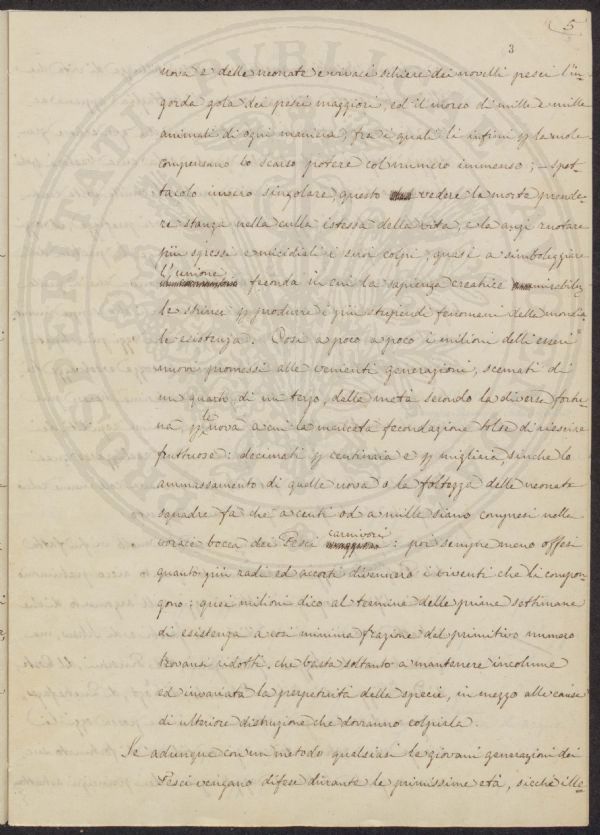 5
3
uova e delle neonate e vivaci schiere dei novelli pesci l'in-
gorda gola dei pesci maggiori, ed il morso di mille e mille
animati di ogni maniera, fra i quali li infimi p la mole
compensano lo scarso potere col numero immenso; – spet-
tacolo invero singolare, questo vedere la morte prende-
re stanza nella culla istessa della vita, e là anzi ruotare
più spessi e micidiali i suoi colpi, quasi a simboleggiare
l'unione feconda in cui la sapienza creatrice mirabil-
le strinse p produrre i più stupendi fenomeni della mondia-
le esistenza. Così a poco a poco i milioni delli esseri
nuovi promessi alle vementi generazioni, scemati di
un quarto, di un terzo, della metà secondo la diversa fortu-
na, p le uova a cui la mancata fecondazione tolse di riescire
fruttuose: decimati p centinaia e p migliaia, sinchè lo
ammassamento di quelle uova o la foltezza delle neonate
squadre fa che a centi od a mille siano compresi nella
vorace bocca dei Pesci carnivori: poi sempre meno offesi
quanto più radi ed accorti divennero i viventi che li compon-
gono: quei milioni dico al termine delle prime settimane
di esistenza a così minima frazione del primitivo numero
trovansi ridotti, che basta soltanto a mantenere incolume
ed invariata la perpetuità della specie, in mezzo alle cause
di ulteriore distruzione che dovranno colpirla.
Se adunque con un metodo qualsiasi le giovani generazioni dei
Pesci vengano difese durante le primissime età, sicchè ille-